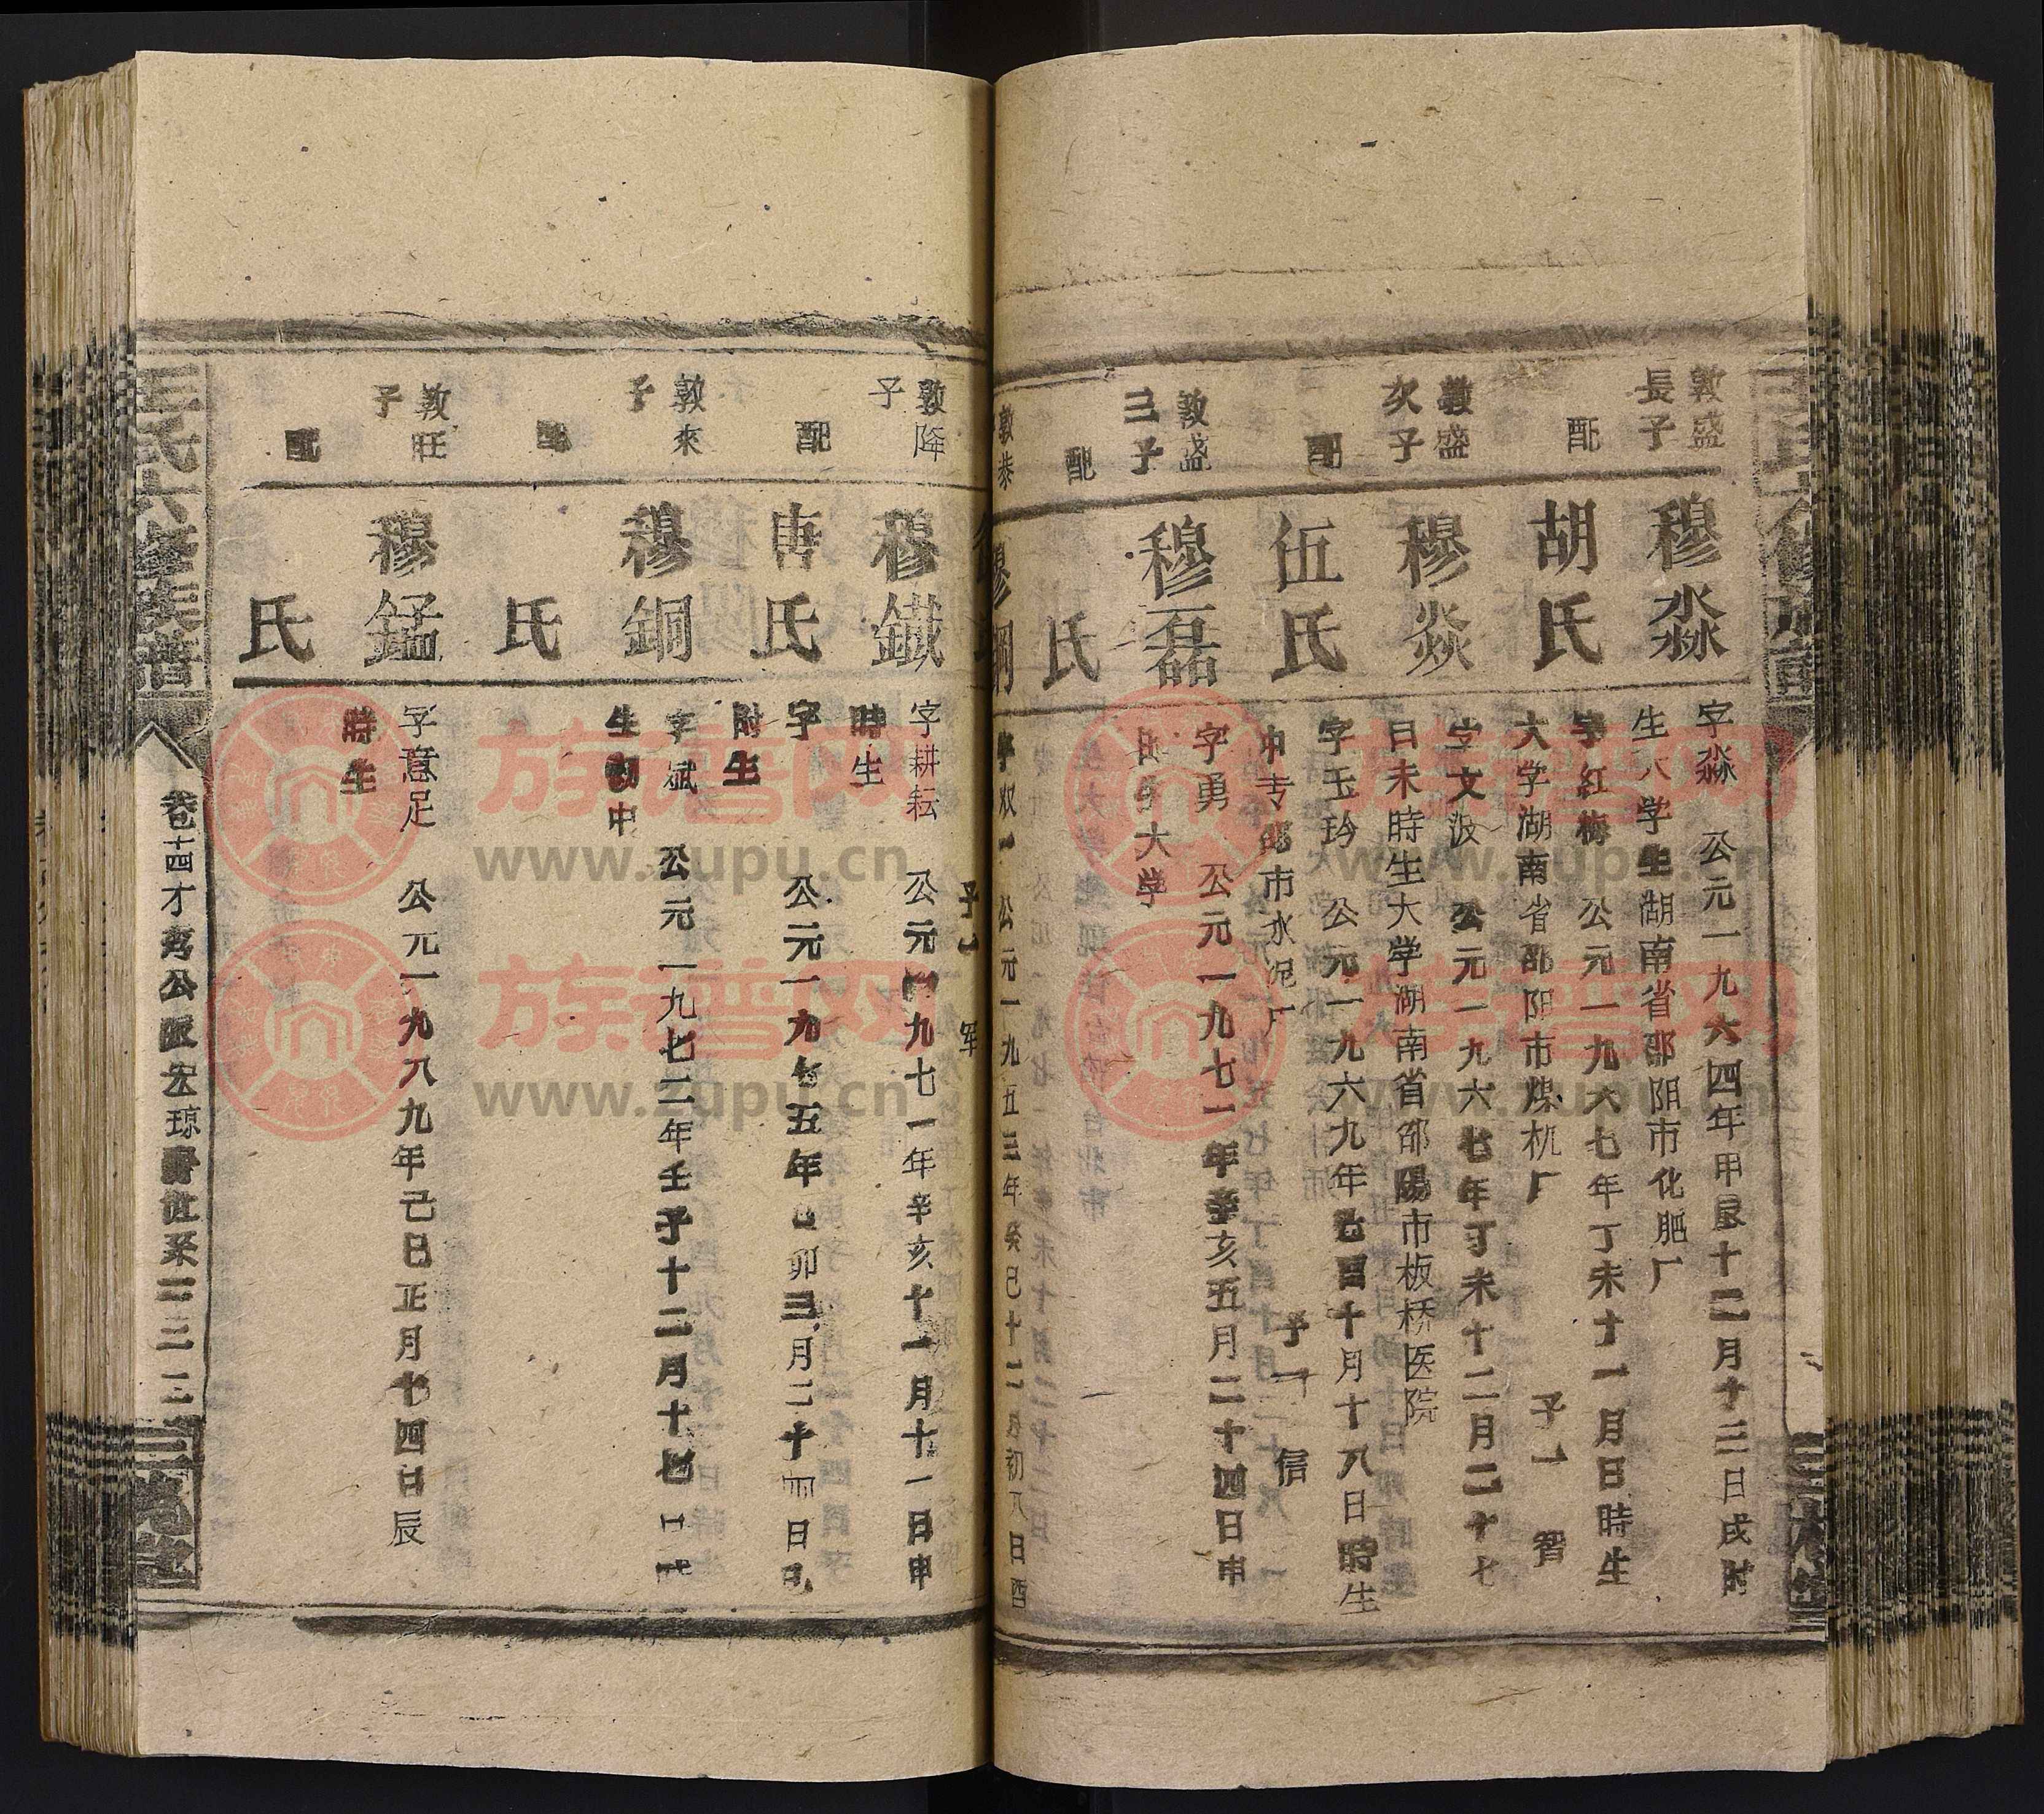 敦盛
長子
穆淼
字淼 公元一九六四年甲辰十二月十三日戌时
生大学生湖南省邵阳市化肥厂
配
胡氏
字紅梅 公元一九六七年丁未十一月日時生
大学湖南省邵阳市煤机厂 子一 智
敦盛
次子
穆焱
字文波 公元一九六七年丁未十二月二十七
日未時生大学湖南省邵陽市板桥医院
配
伍氏
字玉玲 公元一九六九年己酉十月十八日時生
中专邵市水泥厂 子一 信
敦盛
三子
穆磊
字勇 公元一九七一年辛亥五月二十四日申
時生大学
配
氏
敦恭
穆鋼
字双一 公元一九五三年癸巳十二月初八日酉
子一 军
敦降
子
穆鐵
字耕耘 公元一九七一年辛亥十一月十一日申
時生
配
唐氏
字 公元一九七五年乙卯三月二十四日巳
时生
敦來
子
穆銅
字斌 公元一九七二年壬子十二月十七日
生初中
配
氏
敦旺
子
穆錳
字意足 公元一九八九年己巳正月十四日辰
時生
配
氏
王氏六修族谱
卷十四才
公派宏琼
三槐堂
族谱网
www.zupu.cn
族谱网
www.zupu.cn
族谱网
www.zupu.cn
族谱网
www.zupu.cn